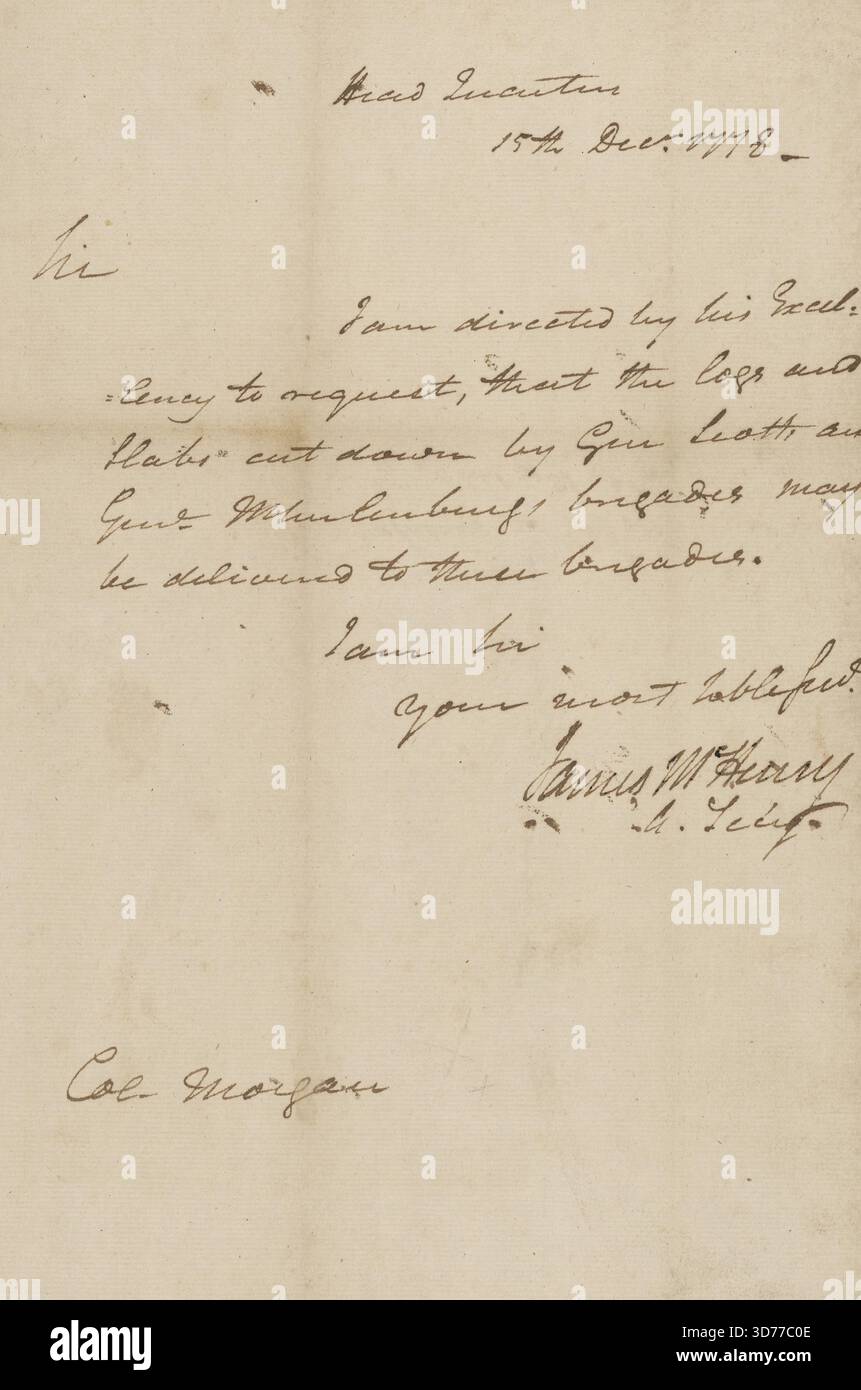 Head Quarters
15th Decr. 1778
Sir
I am directed by his Excel=
=lency to request, that the logs and
slabs cut down by Gen Scotts an
Genl. Muhlenburgs brigades may
be delivered to these brigades.
I am Sir
your most hble Servt.
James McHenry
A. Secy.
Col. Morgan
alamy
alamy
alamy
alamy
alamy
Image ID: 3D77C0E
www.alamy.com